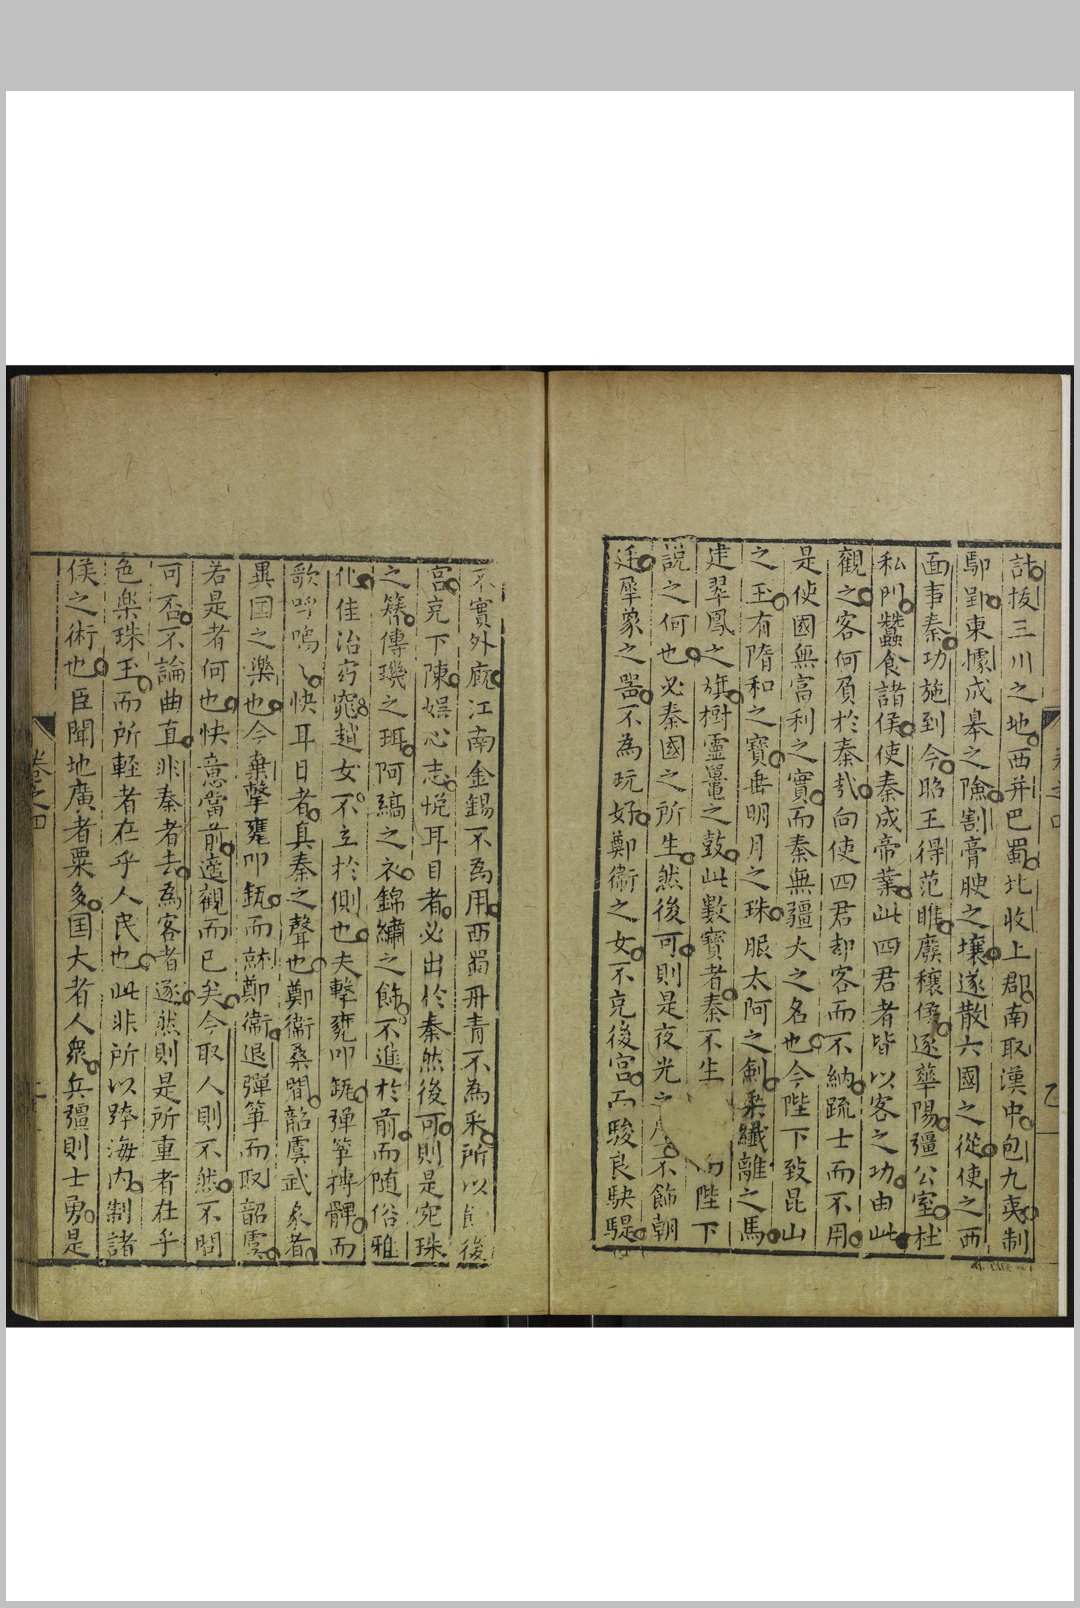 計拔三川之地西并巴蜀北收上郡南取漢中包九夷制
鄢郢東據成皋之險割膏腴之壤遂散六國之從使之西
面事秦功施到今昭王得范睢廢穰侯逐華陽彊公室杜
私門蠶食諸侯使秦成帝業此四君者皆以客之功由此
觀之客何負於秦哉向使四君却客而不納疏士而不用
是使國無富利之實而秦無彊大之名也今陛下致昆山
之玉有隋和之寶垂明月之珠服太阿之劍乘纖離之馬
建翠鳳之旗樹靈鼉之鼓此數寶者秦不生 陛下
説之何也必秦國之所生然後可則是夜光之 不飾朝
廷犀象之器不為玩好鄭衛之女不充後宮而駿良駃騠
不實外廐江南金錫不為用西蜀丹青不為采所以 後
宮充下陳娛心志悅耳目者必出於秦然後可則是宛珠
之簪傅璣之珥阿縞之衣錦繡之飾不進於前而随俗雅
化佳治窈窕趙女不立於側也夫擊甕叩缻彈箏搏髀而
歌呼嗚〻快耳目者真秦之聲也鄭衛桑間韶虞武象者
異国之樂也今棄擊甕叩缻而就鄭衛退彈箏而取韶虞
若是者何也快意當前適觀而已矣今取人則不然不問
可否不論曲直非秦者去為客者逐然則是所重者在乎
色樂珠玉而所輕者在乎人民也此非所以跨海内制諸
侯之術也臣聞地廣者粟多国大者人衆兵彊則士勇是
卷之四